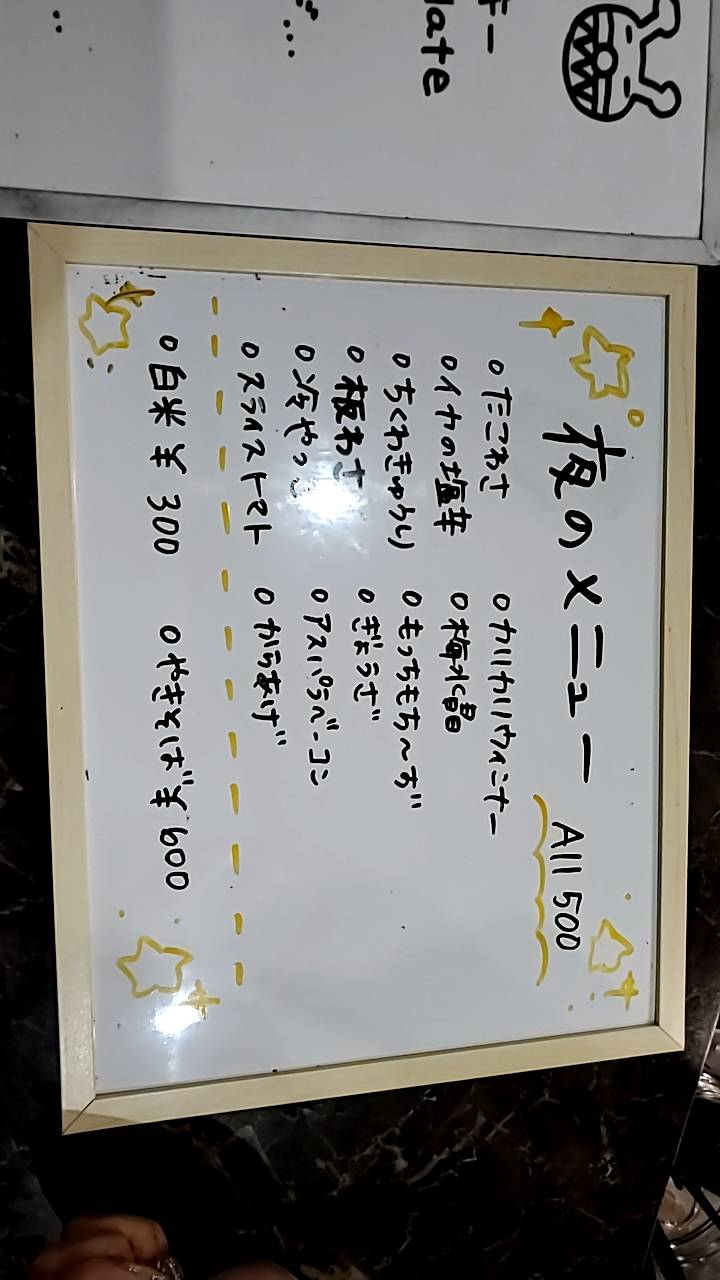 late
夜のメニュー All 500
○たこわさ ○カリカリウィンナー
○イカの塩辛 ○梅水晶
○ちくわきゅうり ○もっちもち〜ず
○板わさ ○ぎょうざ
○冷やっこ ○アスパラベーコン
○スライストマト ○からあげ
○白米¥300 ○やきそば¥600